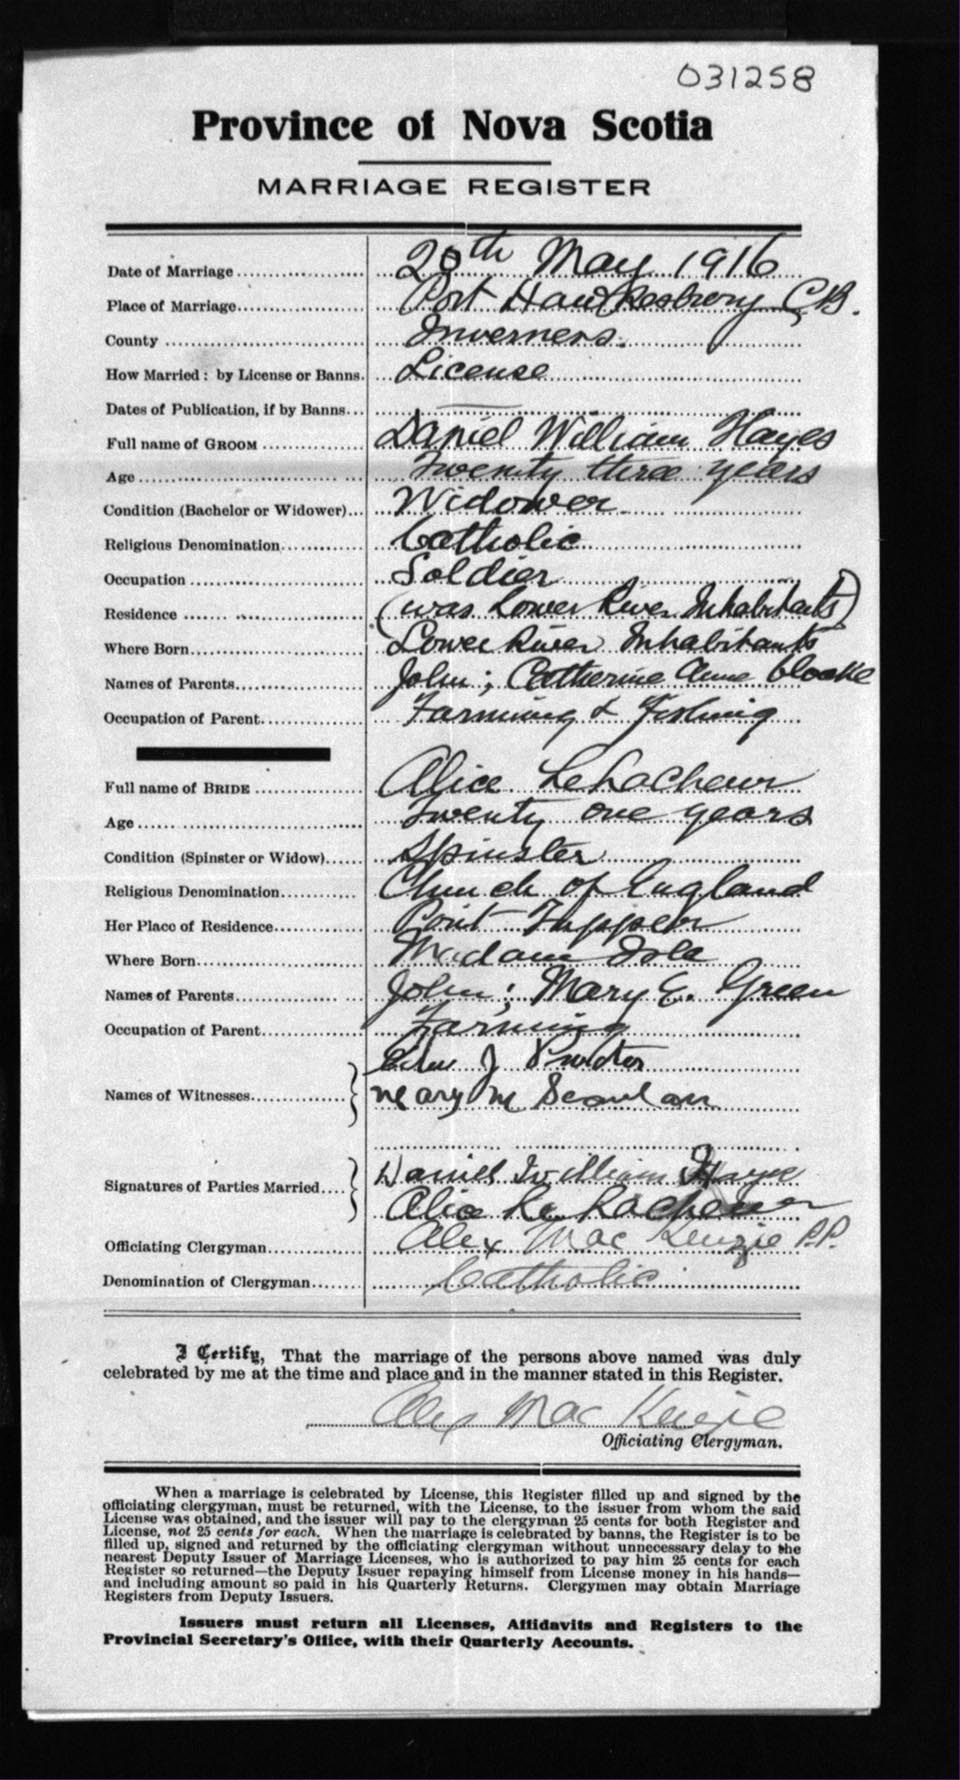 031258
Province of Nova Scotia
MARRIAGE REGISTER
Date of Marriage 20th May 1916
Place of Marriage Port Hawkesbury C.B.
County Inverness.
How Married: by License or Banns. License
Dates of Publication, if by Banns
Full name of GROOM Daniel William Hayes
Age Twenty three years
Condition (Bachelor or Widower) Widower
Religious Denomination Catholic
Occupation Soldier
Residence (was Lower River Inhabitants)
Where Born Lower River Inhabitants
Names of Parents John; Catherine Anne
Occupation of Parent Farming & Fishing
Full name of BRIDE Alice LeLacheur
Age Twenty one years
Condition (Spinster or Widow) Spinster
Religious Denomination Church of England
Her Place of Residence Point Tupper
Where Born Madame Isle
Names of Parents John; Mary E. Green
Occupation of Parent Farming
J
Names of Witnesses Mary M Scanlan
Daniel William Haye
Signatures of Parties Married Alice Le Lacheur
Officiating Clergyman Alex Mac Kenzie P.P.
Denomination of Clergyman Catholic
I Certify, That the marriage of the persons above named was duly
celebrated by me at the time and place and in the manner stated in this Register.
Alex Mac Kenzie
Officiating Clergyman.
When a marriage is celebrated by License, this Register filled up and signed by the
officiating clergyman, must be returned, with the License, to the issuer from whom the said
License was obtained, and the issuer will pay to the clergyman 25 cents for both Register and
License, not 25 cents for each. When the marriage is celebrated by banns, the Register is to be
filled up, signed and returned by the officiating clergyman without unnecessary delay to the
nearest Deputy Issuer of Marriage Licenses, who is authorized to pay him 25 cents for each
Register so returned—the Deputy Issuer repaying himself from License money in his hands—
and including amount so paid in his Quarterly Returns. Clergymen may obtain Marriage
Registers from Deputy Issuers.
Issuers must return all Licenses, Affidavits and Registers to the
Provincial Secretary's Office, with their Quarterly Accounts.